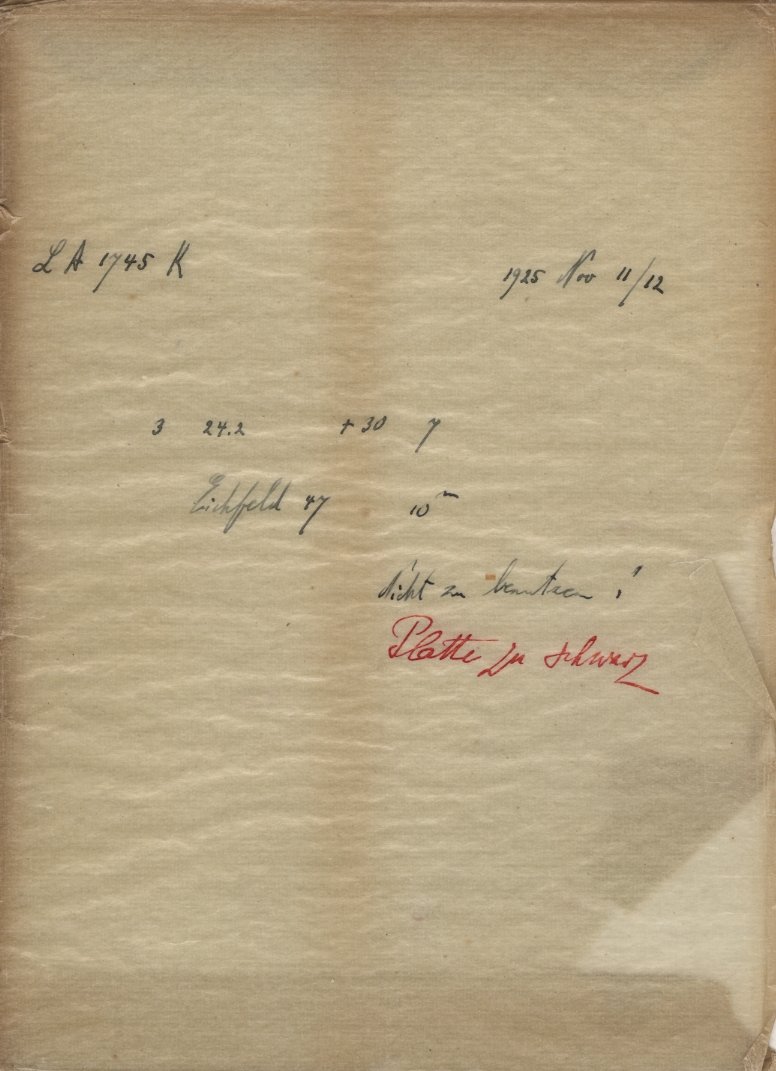 L A 1745 K 1925 Nov 11/12
3 24.2 + 30 7
Eichfeld 47 10ᵐ
Nicht zu benutzen !
Platte zu schwarz